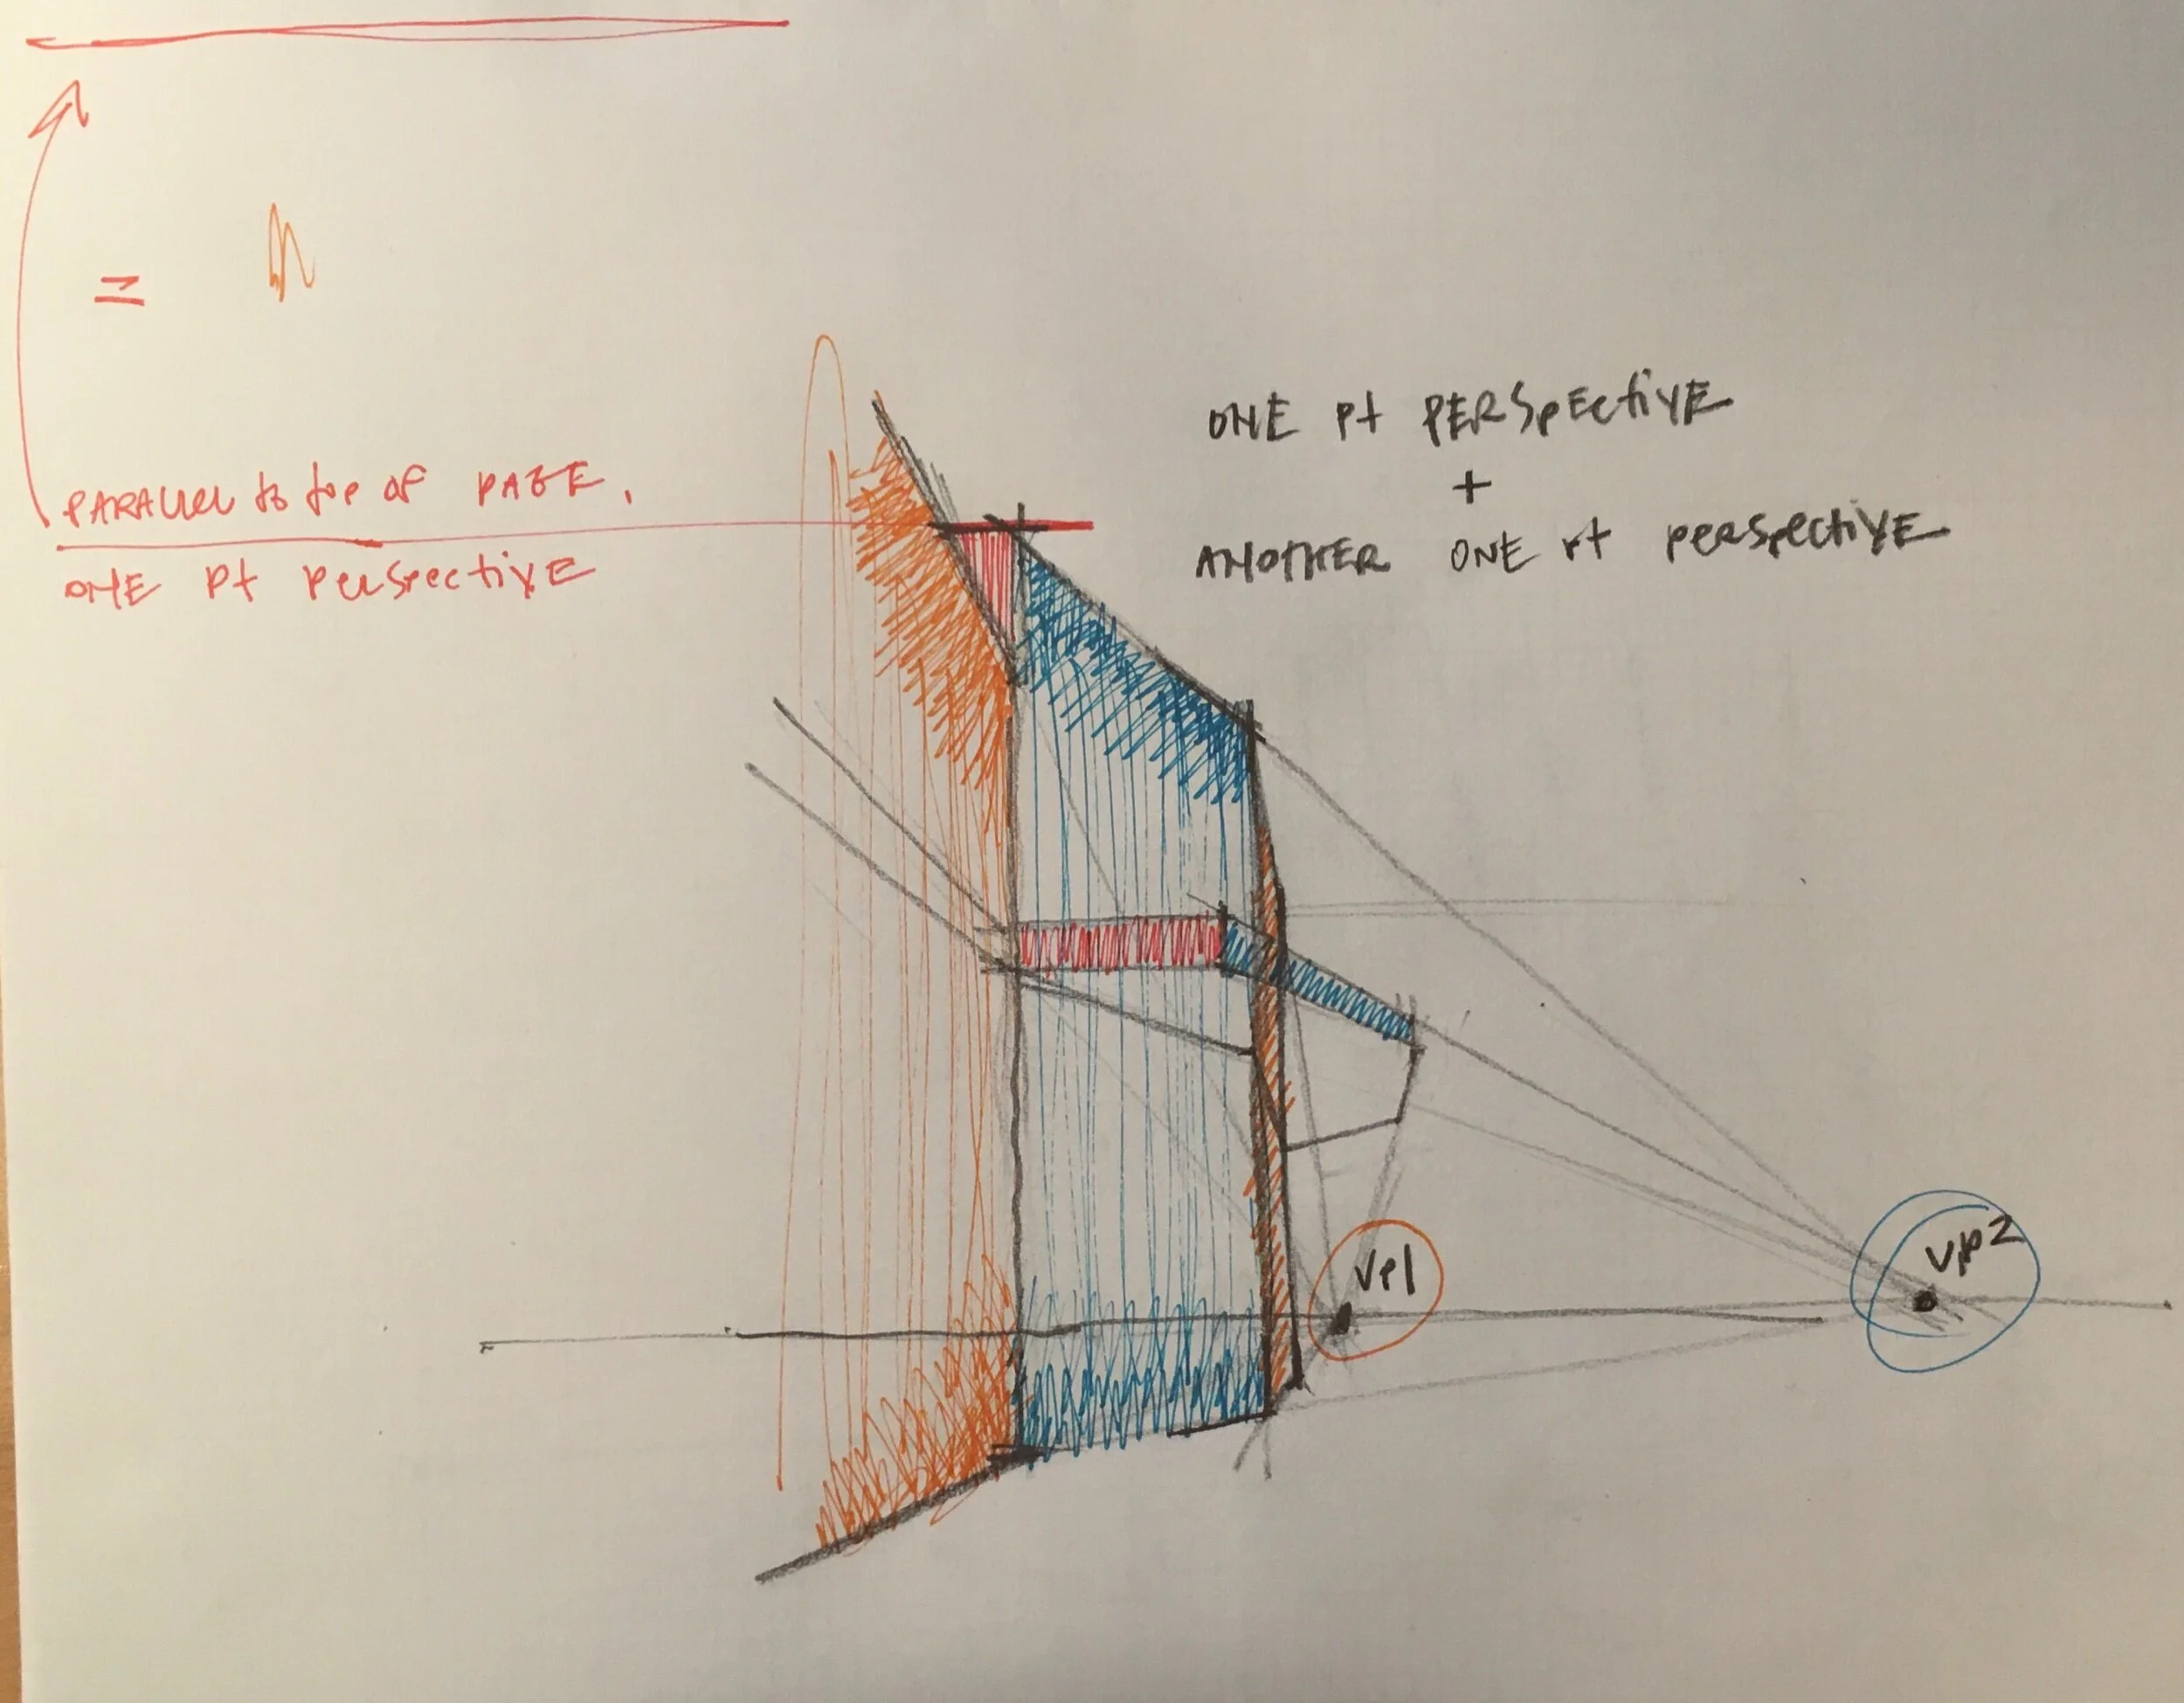 =
PARALLEL to top of PAGE.
ONE Pt PERSPECTIVE
ONE Pt PERSPECTIVE
+
ANOTHER ONE Pt PERSPECTIVE
VP1
VP2